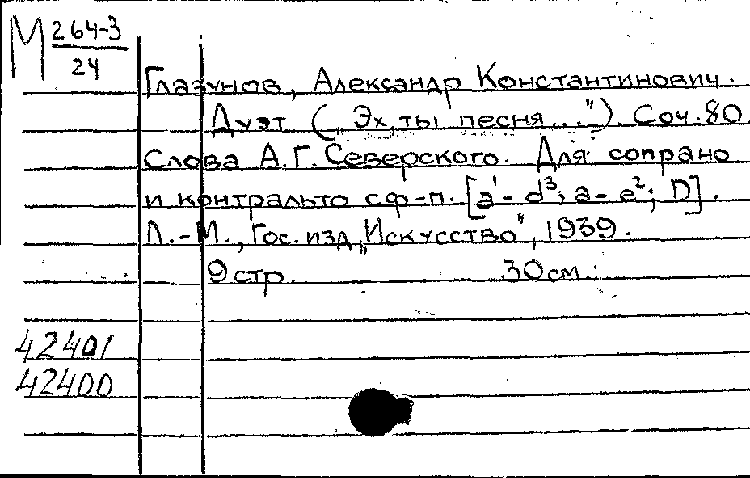 М 264-3
24
Глазунов, Александр Константинович.
Дуэт („Эх, ты песня..."). Соч. 80
Слова А.Г. Северского. Для сопрано
и контральто с ф-п. [a¹- d³; a- e²; D].
Л.-М., Гос. изд. „Искусство", 1939.
9 стр. 30 см.
42401
42400